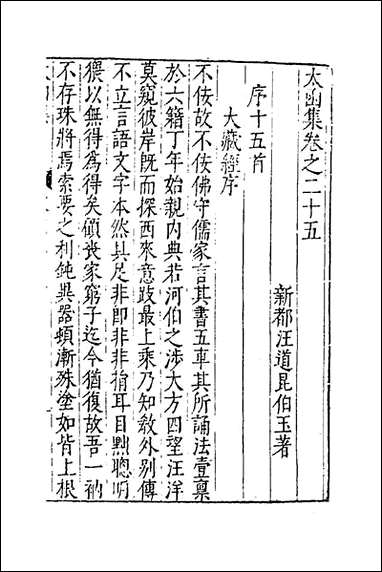 太函集卷之二十五
新都汪道昆伯玉著
序十五首
大藏經序
不佞故不佞佛守儒家言其書五車其所誦法壹稟
於六籍丁年始親內典若河伯之涉大方四望汪洋
莫窺彼岸既而探西來意跂最上乘乃知敎外別傳
不立言語文字本然具足非即非非捐耳目黜聰明
猥以無得爲得矣顧喪家窮子迄今猶復故吾一衲
不存珠將焉索要之利鈍異器頓漸殊塗如皆上根